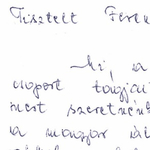 Tisztelt Feren
Mi, a
csoport tagjai
mert szeretnén
a magyar